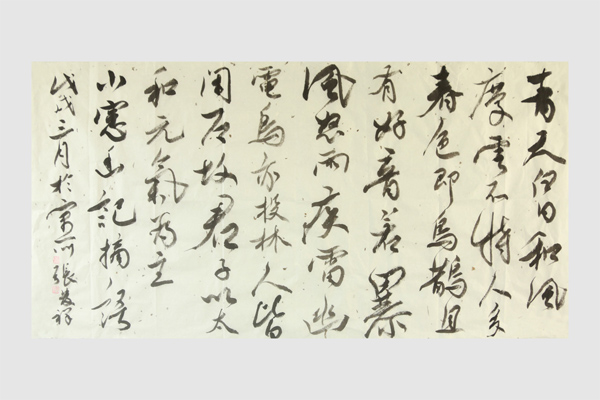 青天白日和風
慶雲不特人多
春色即鳥鵲且
有好音若暴
風怒雨疾雷幽
電鳥亦投林人皆
閉戶故君子以太
和元氣為主
小窻幽記摘語
戊戌三月於 張發祥